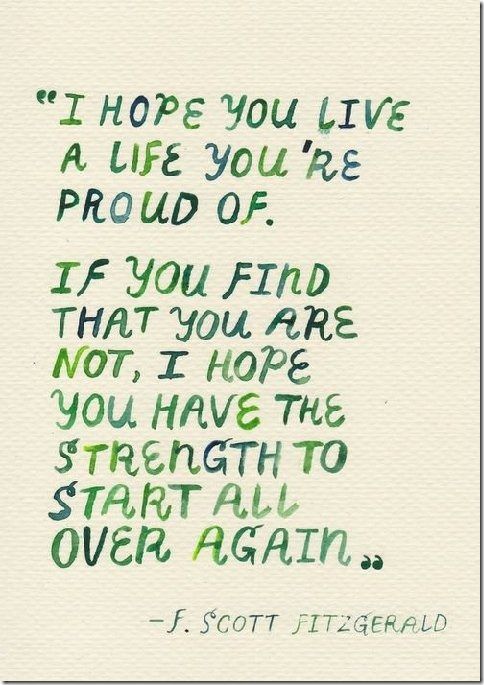 “I HOPE YOU LIVE
A LIFE YOU'RE
PROUD OF.
IF YOU FIND
THAT YOU ARE
NOT, I HOPE
YOU HAVE THE
STRENGTH TO
START ALL
OVER AGAIN„
-F. SCOTT FITZGERALD